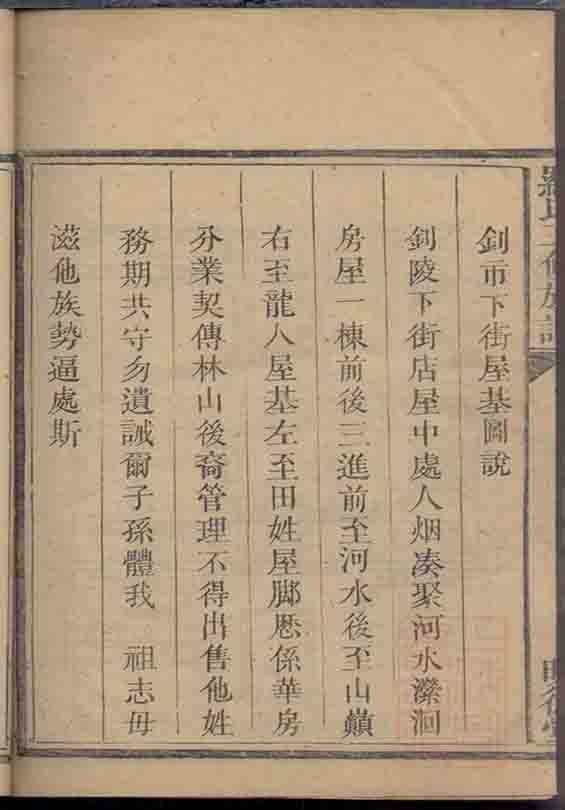 釗市下街屋基圖說
釗陵下街店屋中處人烟凑聚河水瀠洄
房屋一棟前後三進前至河水後至山巔
右至龍人屋基左至田姓屋脚懸係華房
分業契傳林山後裔管理不得出售他姓
務期共守勿遺誡爾子孫體我 祖志毋
滋他族勢逼處斯